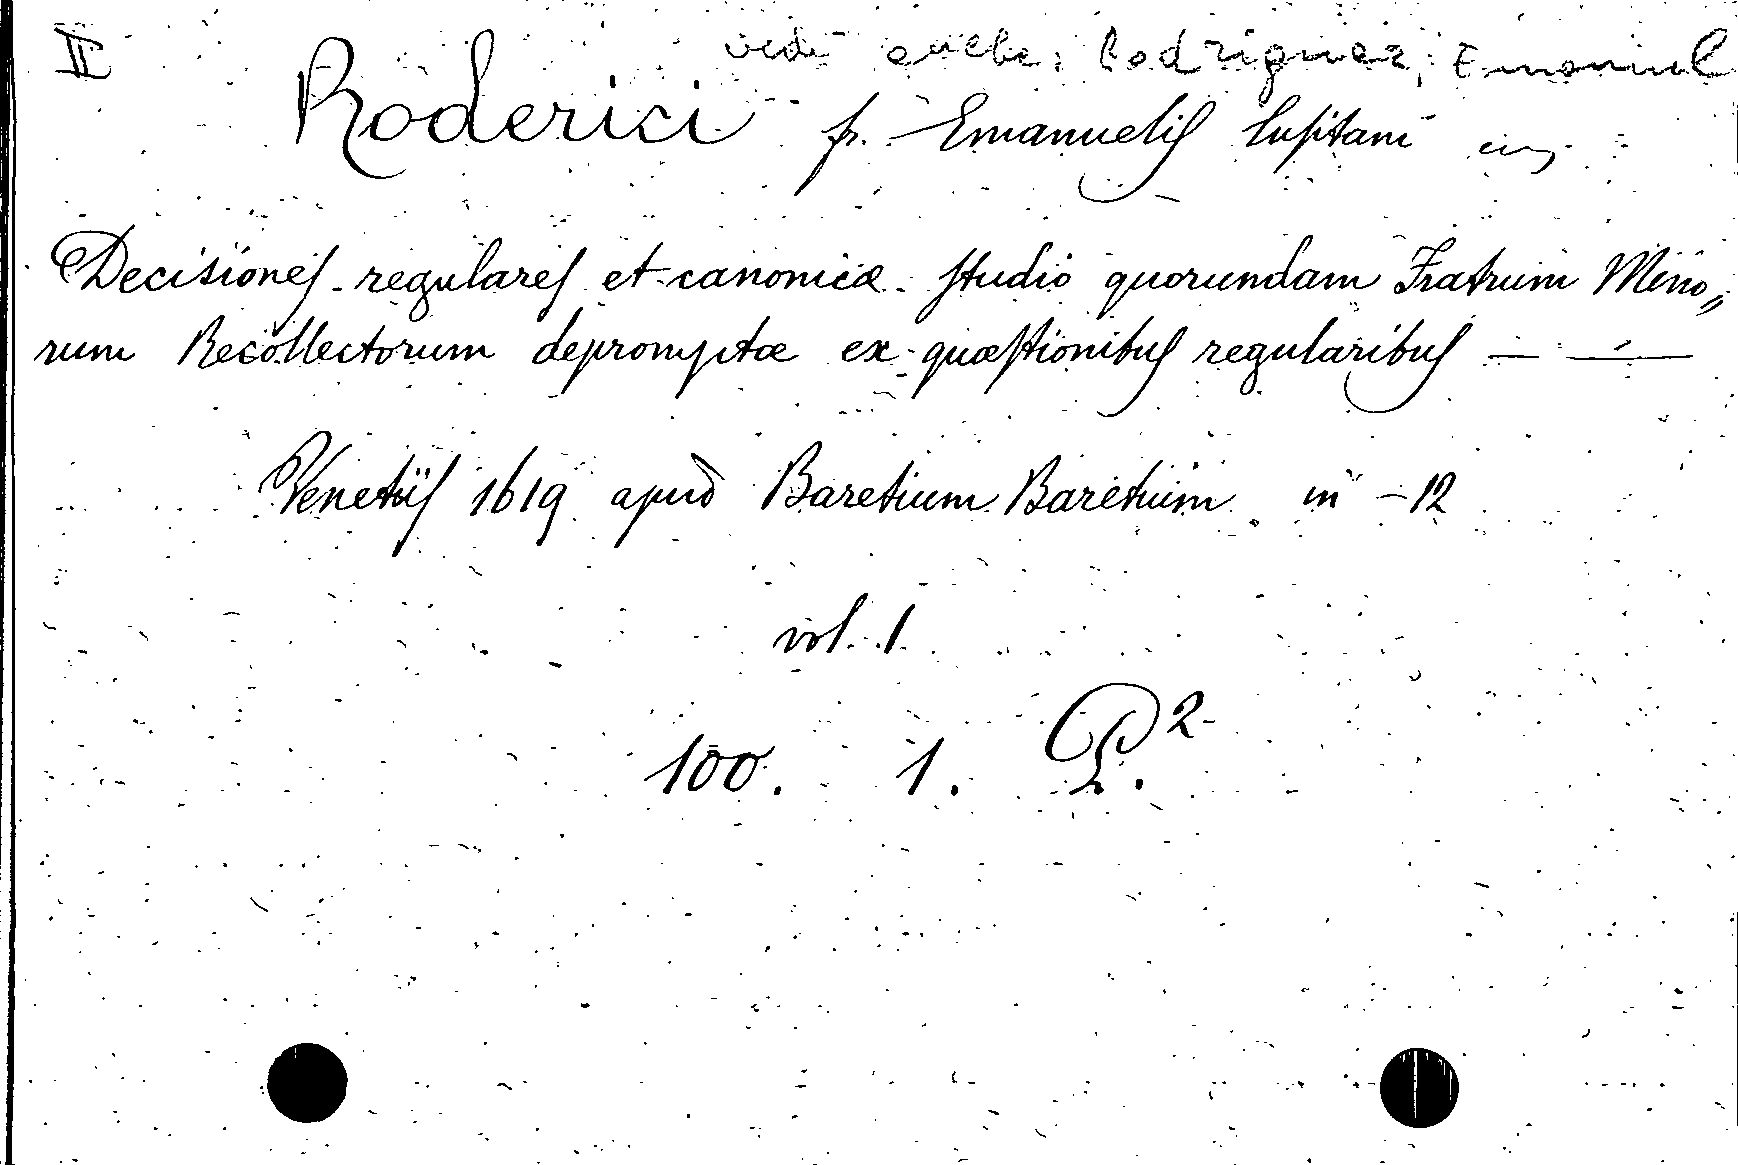 II vedi anche: Rodriguez, Emanuel
Roderici fr. Emanuelis lusitani
Decisiones regulares et canonicæ studio quorundam Fratrum Mino„
rum Recollectorum depromptæ ex quæstionibus regularibus — —
Venetiis 1619 apud Baretium Baretium in - 12
vol. 1
100. 1. P.2